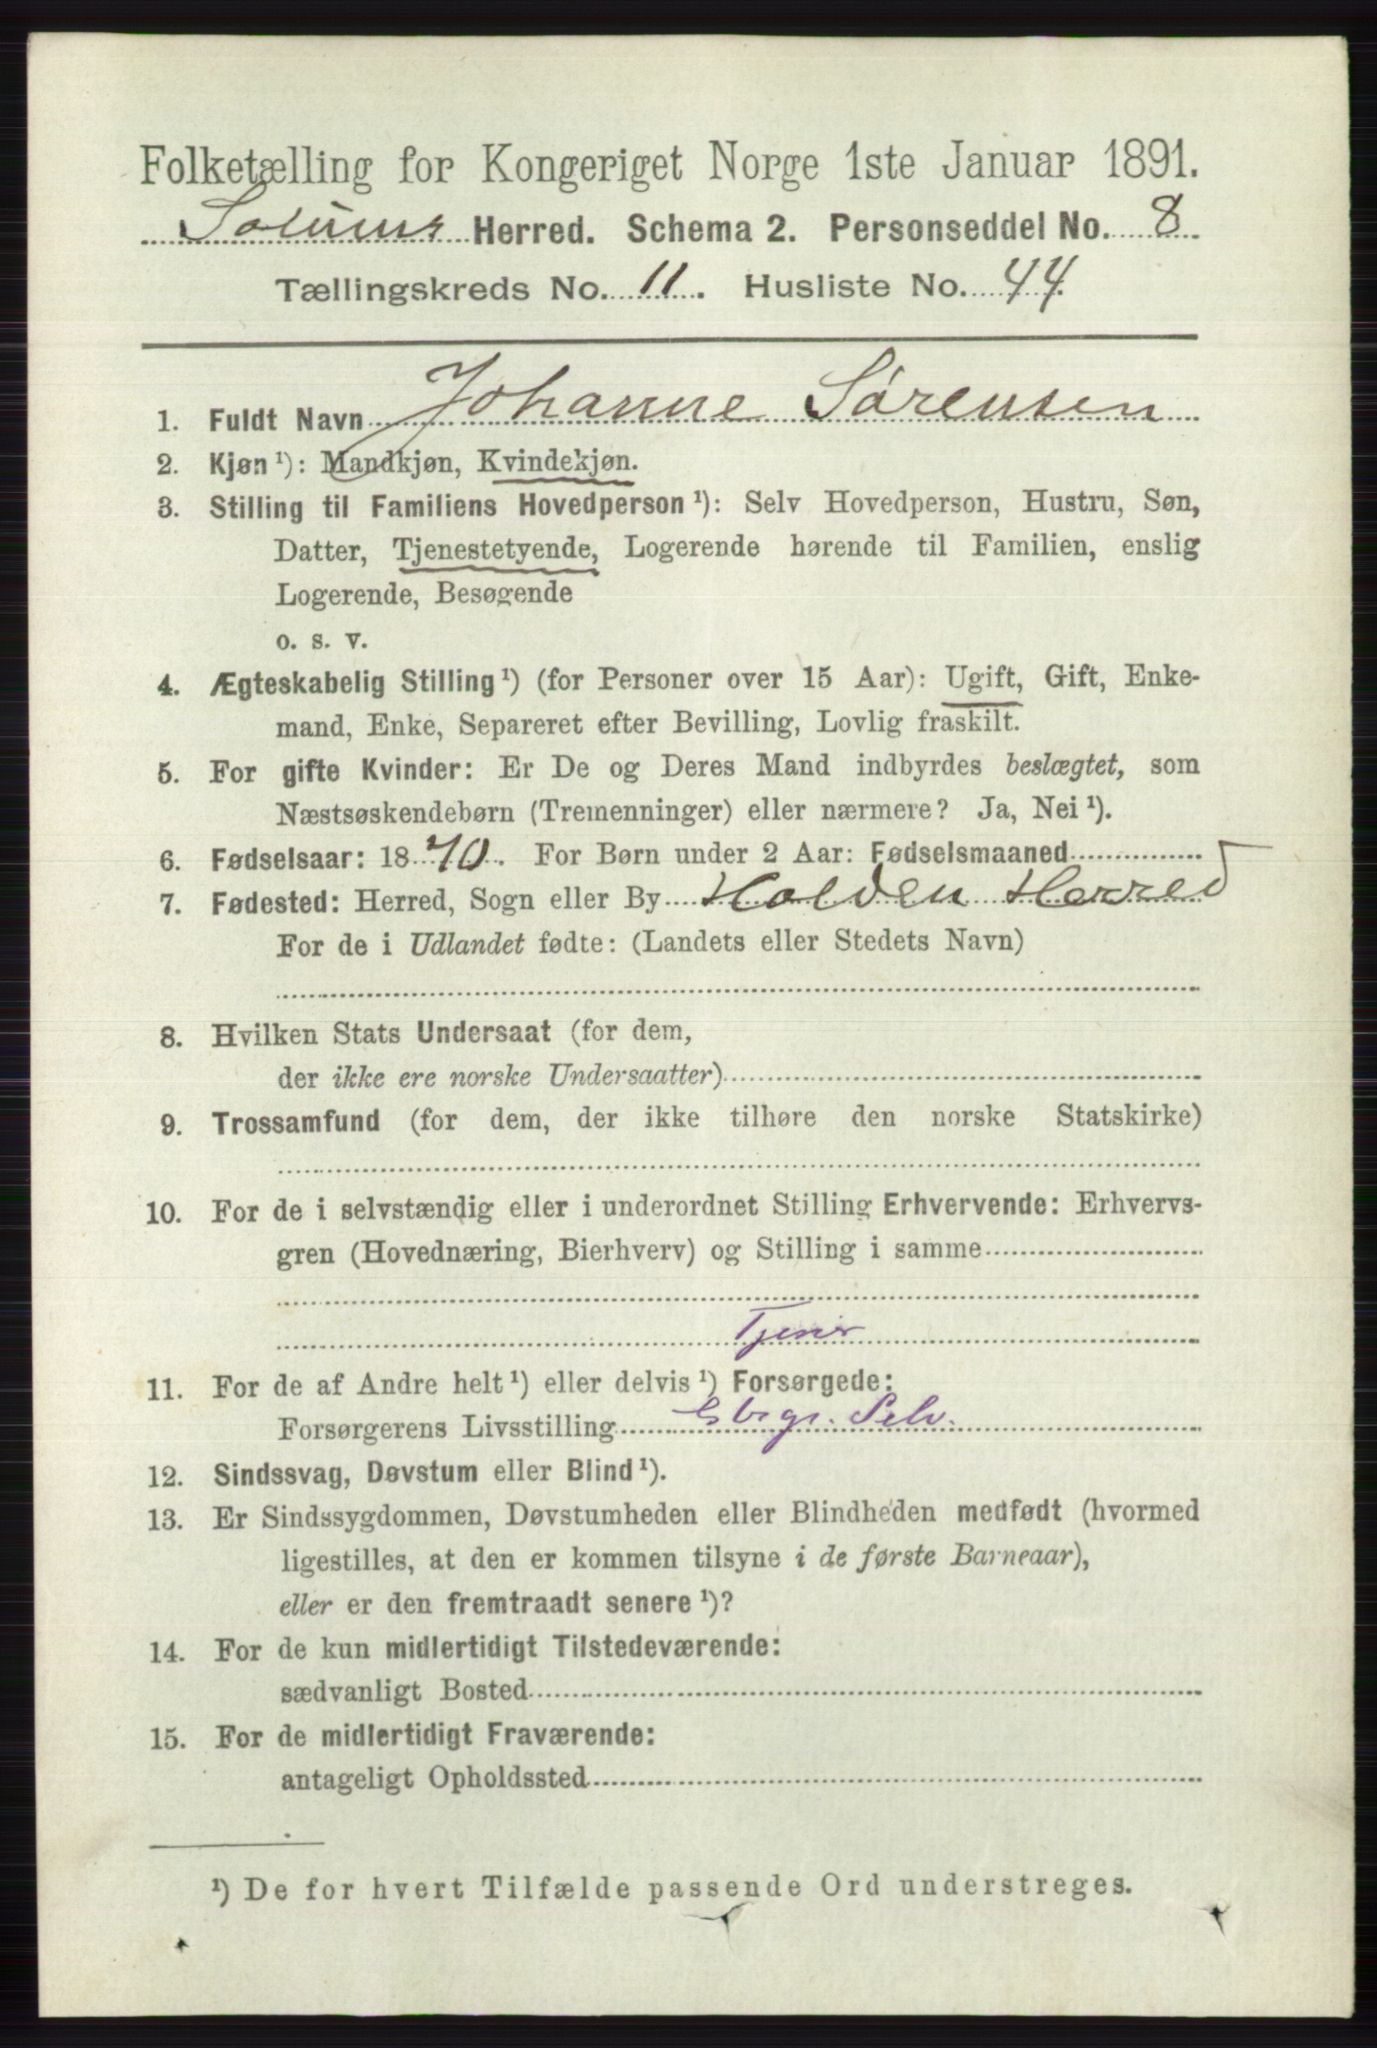 Folketælling for Kongeriget Norge 1ste Januar 1891.
Solums Herred. Schema 2. Personseddel No. 8
Tællingskreds No. 11. Husliste No. 44.
1. Fuldt Navn Johanne Sørensen
2. Kjøn ¹): Mandkjøn, Kvindekjøn.
3. Stilling til Familiens Hovedperson ¹): Selv Hovedperson, Hustru, Søn,
Datter, Tjenestetyende, Logerende hørende til Familien, enslig
Logerende, Besøgende
o. s. v.
4. Ægteskabelig Stilling ¹) (for Personer over 15 Aar): Ugift, Gift, Enke-
mand, Enke, Separeret efter Bevilling, Lovlig fraskilt.
5. For gifte Kvinder: Er De og Deres Mand indbyrdes beslægtet, som
Næstsøskendebørn (Tremenninger) eller nærmere? Ja, Nei ¹).
6. Fødselsaar: 1870. For Børn under 2 Aar: Fødselsmaaned
7. Fødested: Herred, Sogn eller By Holden Herred
For de i Udlandet fødte: (Landets eller Stedets Navn)
8. Hvilken Stats Undersaat (for dem,
der ikke ere norske Undersaatter)
9. Trossamfund (for dem, der ikke tilhøre den norske Statskirke)
10. For de i selvstændig eller i underordnet Stilling Erhvervende: Erhvervs-
gren (Hovednæring, Bierhverv) og Stilling i samme
Tjener
11. For de af Andre helt ¹) eller delvis ¹) Forsørgede:
Forsørgerens Livsstilling Gbrgr. Selv.
12. Sindssvag, Døvstum eller Blind ¹).
13. Er Sindssygdommen, Døvstumheden eller Blindheden medfødt (hvormed
ligestilles, at den er kommen tilsyne i de første Barneaar),
eller er den fremtraadt senere ¹)?
14. For de kun midlertidigt Tilstedeværende:
sædvanligt Bosted
15. For de midlertidigt Fraværende:
antageligt Opholdssted
¹) De for hvert Tilfælde passende Ord understreges.